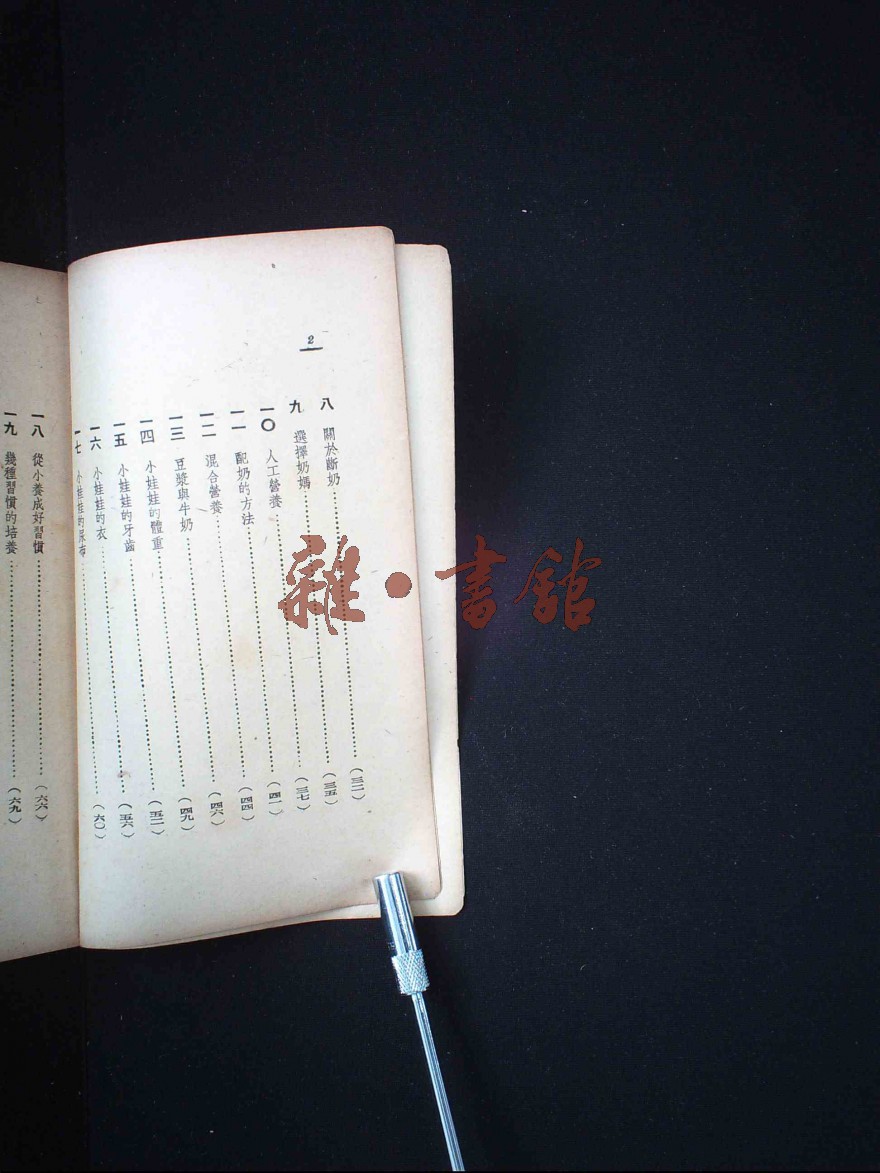 2
八 關於斷奶……（三二）
九 選擇奶媽……（三五）
一〇 人工營養……（三七）
一一 配奶的方法……（四一）
一二 混合營養……（四四）
一三 豆漿與牛奶……（四六）
一四 小娃娃的體重……（四九）
一五 小娃娃的牙齒……（五二）
一六 小娃娃的衣……（五六）
一七 小娃娃的尿布……（六〇）
一八 從小養成好習慣……（六六）
一九 幾種習慣的培養……（六九）
雜·書館